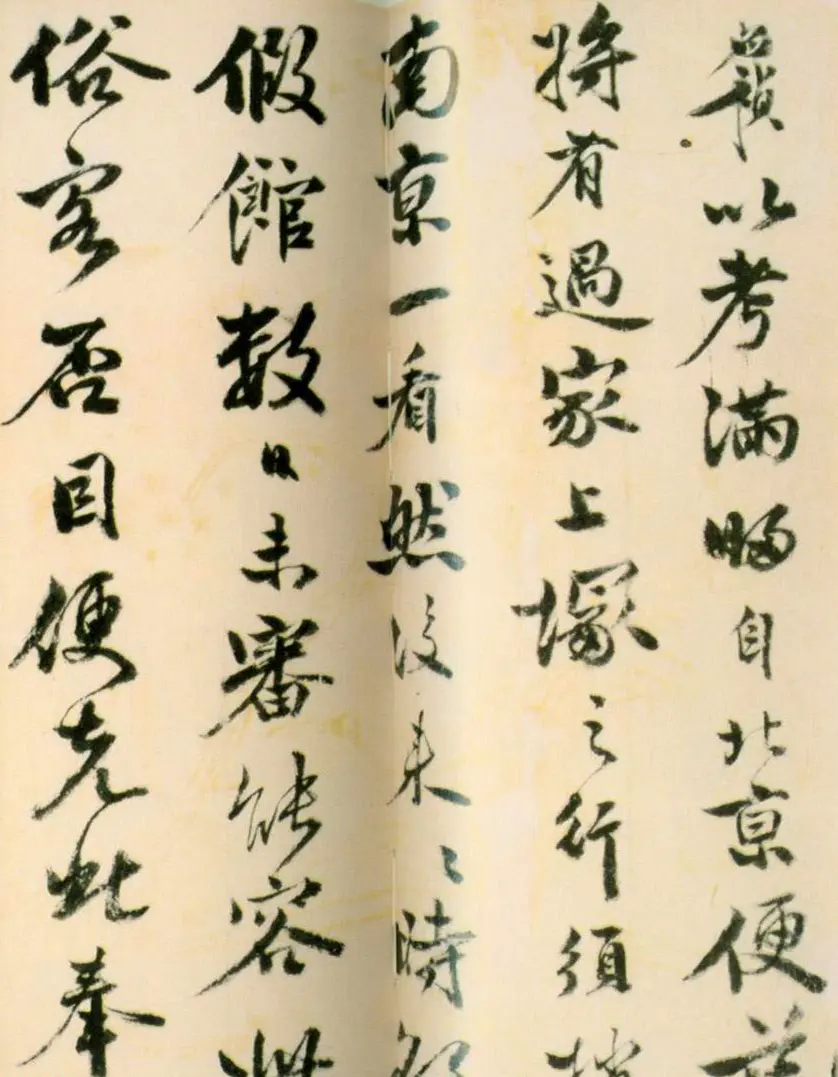 以考滿歸自北京便
將有過家上塚之行須
南京一看然後來々時
假館數日未審能容
俗客否因便先此奉